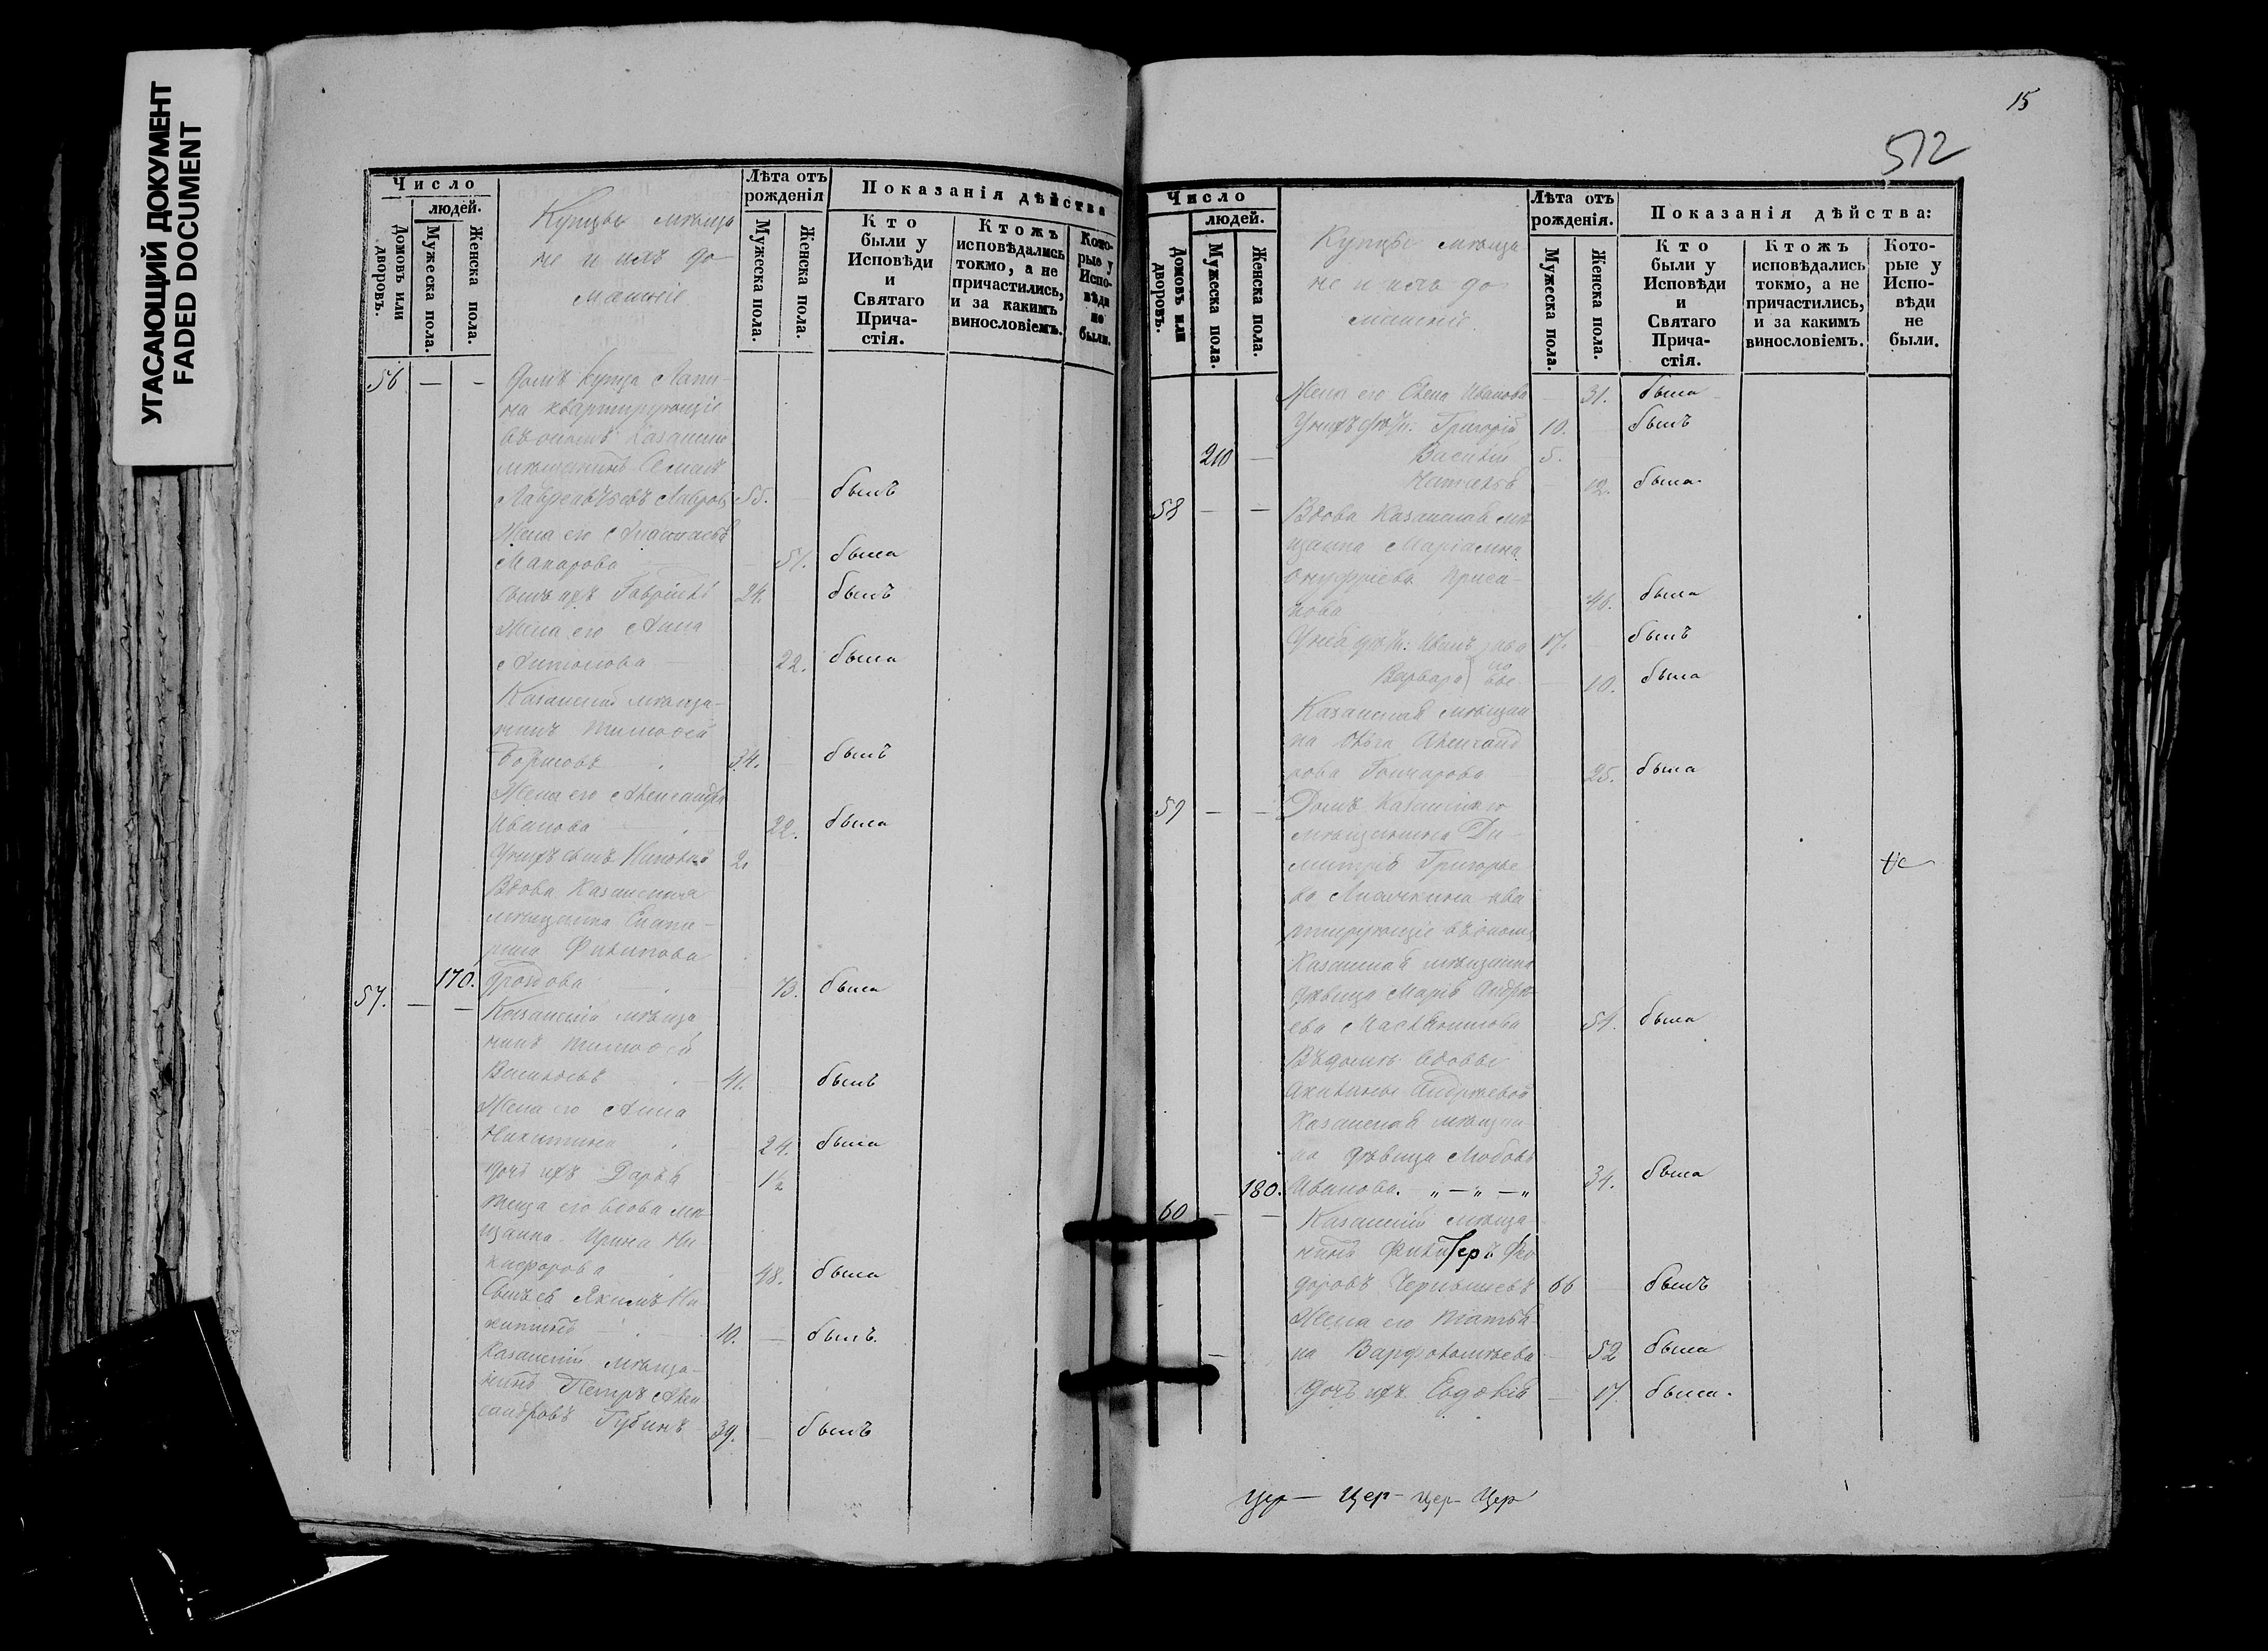 УГАСАЮЩИЙ ДОКУМЕНТ
FADED DOCUMENT
Число
людей.
Домовъ или дворовъ.
Мужеска пола.
Женска пола.
Купцы мѣща
не и ихъ до
машніе.
Лѣта отъ рожденія
Мужеска пола.
Женска пола.
Показанія дѣйства
Кто были у Исповѣди и Святаго Прича-стія.
Ктожъ исповѣдались токмо, а не причастились, и за какимъ винословіемъ.
Кото-рые у Испо-вѣди не были.
56 — — Домъ купца Лапи-
на квартирующіе
въ ономъ Казанск.
мѣщанинъ
Лаврентьевъ 55. былъ
Жена его
Макарова 51. была
Сынъ ихъ Гавріилъ 24. былъ
Жена его Анна
Антонова — 22. была
Казанскій мѣща-
нинъ Тимофей
Борисовъ 34. — былъ
Жена его Александра
Иванова — 22. была
У нихъ сынъ Николай 2.
Вдова Казанская
мѣщанка Екате-
рина Филипова
170. Дроздова — 73. была
57. — — Казанскій мѣща
нинъ Тимофей
Васильевъ — 41. былъ
Жена его Анна
Никитина 24. была
Дочь ихъ Дарья 1½
Теща его вдова мѣ
щанка Ирина Ни
кифорова 48. была
Сынъ ея Якимъ Ни
китинъ — 10. — былъ.
Казанскій мѣща-
нинъ Петръ Алек
сандровъ Губинъ 39. — былъ
15
512
Число
людей.
Домовъ или дворовъ.
Мужеска пола.
Женска пола.
Купцы мѣща
не и ихъ до
машніе.
Лѣта отъ рожденія.
Мужеска пола.
Женска пола.
Показанія дѣйства:
Кто были у Исповѣди и Святаго Прича-стія.
Ктожъ исповѣдались токмо, а не причастились, и за какимъ винословіемъ.
Кото-рые у Испо-вѣди не были.
Жена его Елена Иванова — 31. была
У нихъ дѣти: Григорій 10. былъ
210 — Василій 5.
Наталья — 12. была.
58 — — Вдова Казанская мѣ
щанка Маріамна
Онуфріева
46. была
У нея дѣти: Иванъ 17. — былъ
Варвара — 10. была
Казанская мѣщан
ка Ольга Александ
рова Гончарова — 25. была
59 — — Домъ Казанскаго
мѣщанина Ди-
митрія Григорье
ва квар
тирующіе въ ономъ
Казанская мѣщанка
дѣвица Марія Андре
ева 54. была
Въ домѣ вдовы
Акилины Андреевой
Казанская мѣщан-
ка дѣвица Любовь
180. Иванова. „ — „ — „ 34. была
60 — — Казанскій мѣща-
нинъ Филитеръ Фео
доровъ Чернышевъ 66 — былъ
Жена его Татья
на Варфоломѣева — 52 была
Дочь ихъ Евдокія — 17. была.
Цер — Цер — Цер — Цер